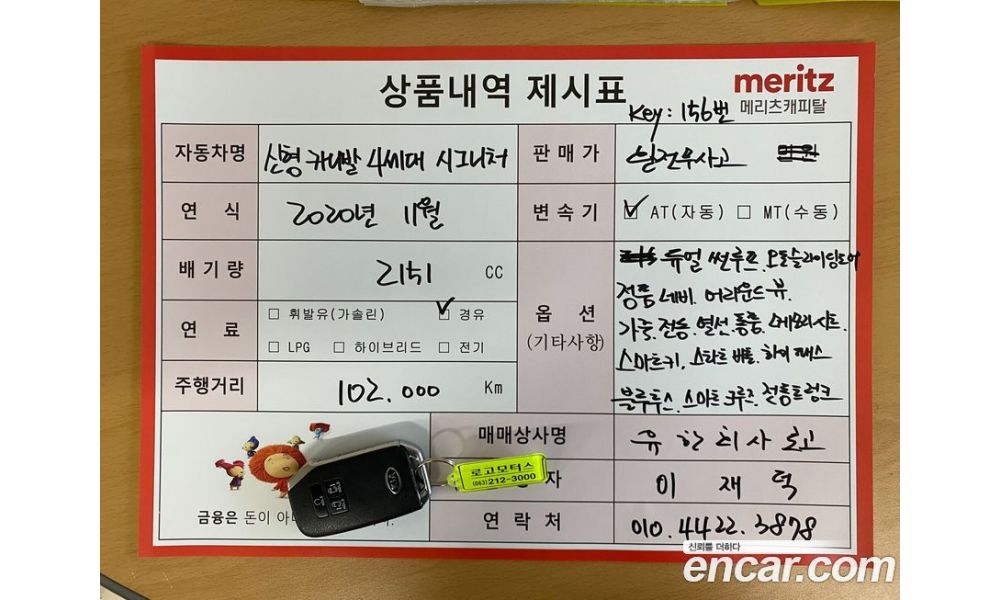 상품내역 제시표
meritz
메리츠캐피탈
Key : 156번
자동차명 신형 카니발 4세대 시그니처
판매가 실전무사고
연식 2020년 11월
변속기 ☑ AT(자동) □ MT(수동)
배기량 2151 CC
연료 □ 휘발유(가솔린) ☑ 경유
□ LPG □ 하이브리드 □ 전기
주행거리 102.000 Km
옵션
(기타사항)
듀얼 썬루프. 오토슬라이딩도어
정품 네비. 어라운드 뷰.
가죽. 전동. 열선. 통풍. 메모리시트.
스마트키. 스타트 버튼. 하이패스
블루투스. 스마트 크루즈. 전동트렁크
매매상사명 유한회사 로고
자 이재덕
연락처 010. 4422. 3878
로고모터스
(063)212-3000
KIA
금융은 돈이 아
신뢰를 더하다
encar.com